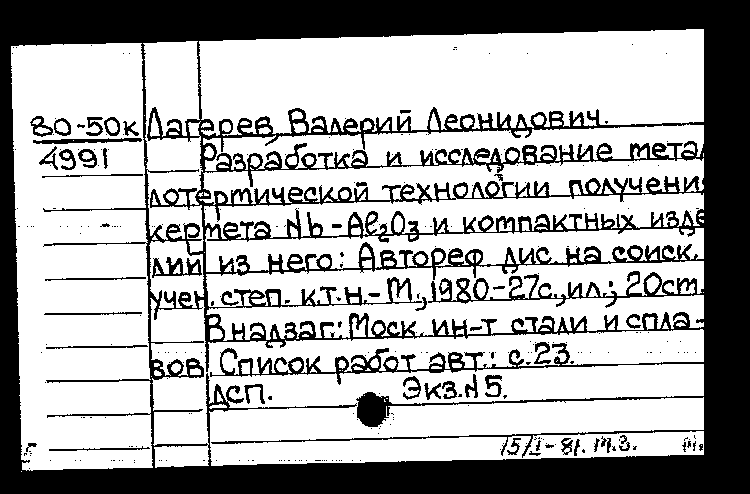 80-50к Лагерев, Валерий Леонидович.
4991 Разработка и исследование метал
лотертической технологии получени
кермета Nb-Al₂O₃ и компактных изде
лий из него: Автореф. дис. на соиск.
учен. степ. к.т.н.-М., 1980.-27с., ил.; 20см.
В надзаг.: Моск. ин-т стали и спла-
вов. Список работ авт.: с.23.
ДСП. Экз.№5.
15/I-81. М.З.